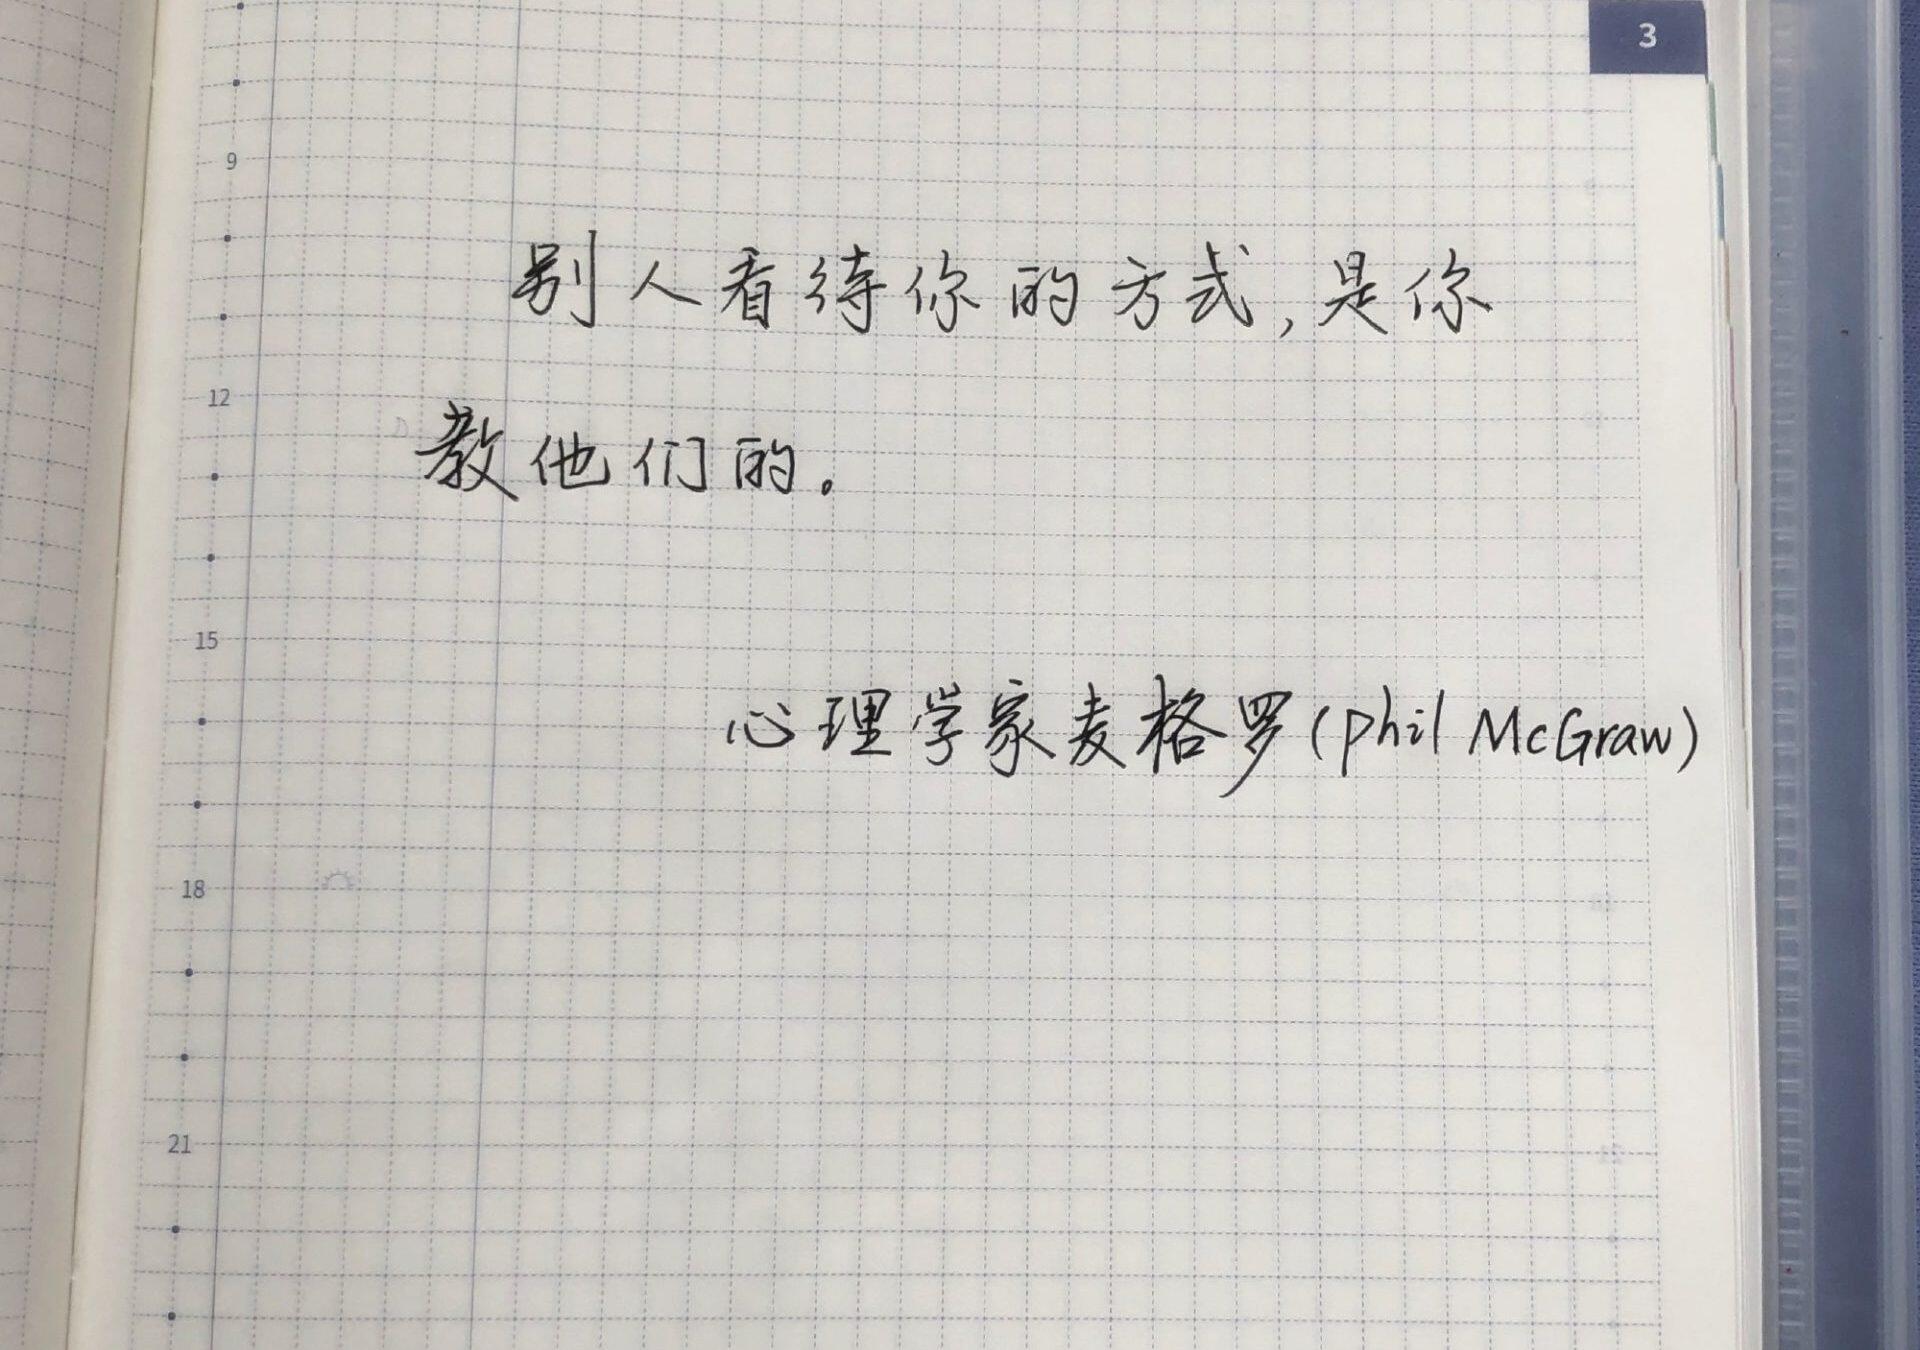 3
9
别人看待你的方式,是你
12
教他们的。
15
心理学家麦格罗(phil McGraw)
18
21